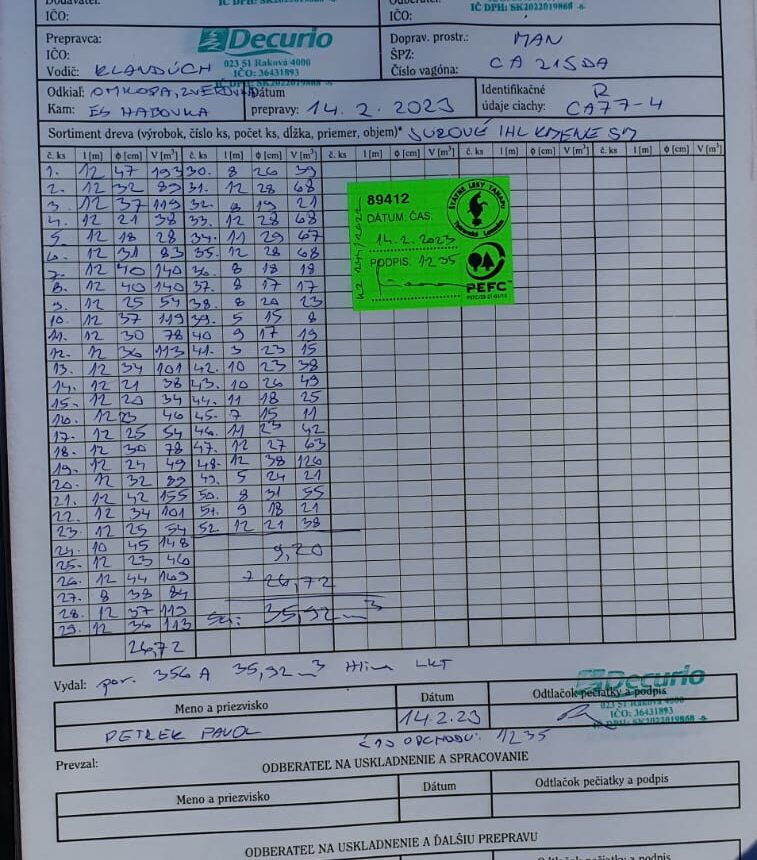 Dodávateľ
IČO:
IČ DPH: SK2022019868 -8-
Odberateľ
IČO:
IČ DPH: SK2022019868 -8-
Prepravca:
IČO:
Vodič: KLANDÚCH
Decurio
023 51 Raková 4000
IČO: 36431893
IČ DPH: SK2022019868 -8-
Doprav. prostr.: MAN
ŠPZ:
Číslo vagóna: CA 215DA
Odkiaľ:
Kam: ES HABOVKA
Dátum
prepravy: 14.2.2023
Identifikačné R
údaje ciachy: CA77-4
Sortiment dreva (výrobok, číslo ks, počet ks, dĺžka, priemer, objem)* SUROVÉ IHL KMENE SM
č. ks l [m] ϕ [cm] V [m³] č. ks l [m] ϕ [cm] V [m³] č. ks l [m] ϕ [cm] V [m³] č. ks l [m] ϕ [cm] V [m³] č. ks l [m] ϕ [cm] V [m³]
1. 12 47 193 30. 8 26 39
2. 12 32 89 31. 12 28 68
3. 12 37 119 32. 8 19 21
4. 12 21 38 33. 12 28 68
5. 12 18 28 34. 11 29 67
6. 12 31 83 35. 12 28 68
7. 12 40 140 36. 8 18 18
8. 12 40 140 37. 8 17 17
9. 12 25 54 38. 8 20 23
10. 12 37 119 39. 5 15 8
11. 12 30 78 40 9 17 19
12. 12 36 113 41. 3 23 15
13. 12 34 101 42. 10 23 38
14. 12 21 38 43. 10 26 49
15. 12 20 34 44. 11 18 25
16. 12 23 46 45. 7 15 11
17. 12 25 54 46. 11 23 42
18. 12 30 78 47. 12 27 63
19. 12 24 49 48. 12 38 126
20. 12 32 89 49. 5 24 21
21. 12 42 155 50. 8 31 55
22. 12 34 101 51. 9 18 21
23. 12 25 54 52. 12 21 38
24. 10 45 148
25. 12 23 46 9,20
26. 12 44 169 26,72
27. 8 38 84
28. 12 37 119 35,92 m³
29. 12 36 113
26,72
89412
DÁTUM: ČAS:
14.2.2023
PODPIS: 12 35
ŠTÁTNE LESY TANAPU
Tatranská Lomnica
PEFC™
Vydal: por. 356 A 35,92 m³ Hlina LKT
Meno a priezvisko
Dátum
Odtlačok pečiatky a podpis
Decurio
023 51 Raková 4000
IČO: 36431893
IČ DPH: SK2022019868 -8-
PETREK PAVOL
14.2.23
ČAS ODCHODU: 12 35
Prevzal:
ODBERATEĽ NA USKLADNENIE A SPRACOVANIE
Meno a priezvisko
Dátum
Odtlačok pečiatky a podpis
ODBERATEĽ NA USKLADNENIE A ĎALŠIU PREPRAVU
Dátum
Odtlačok pečiatky a podpis